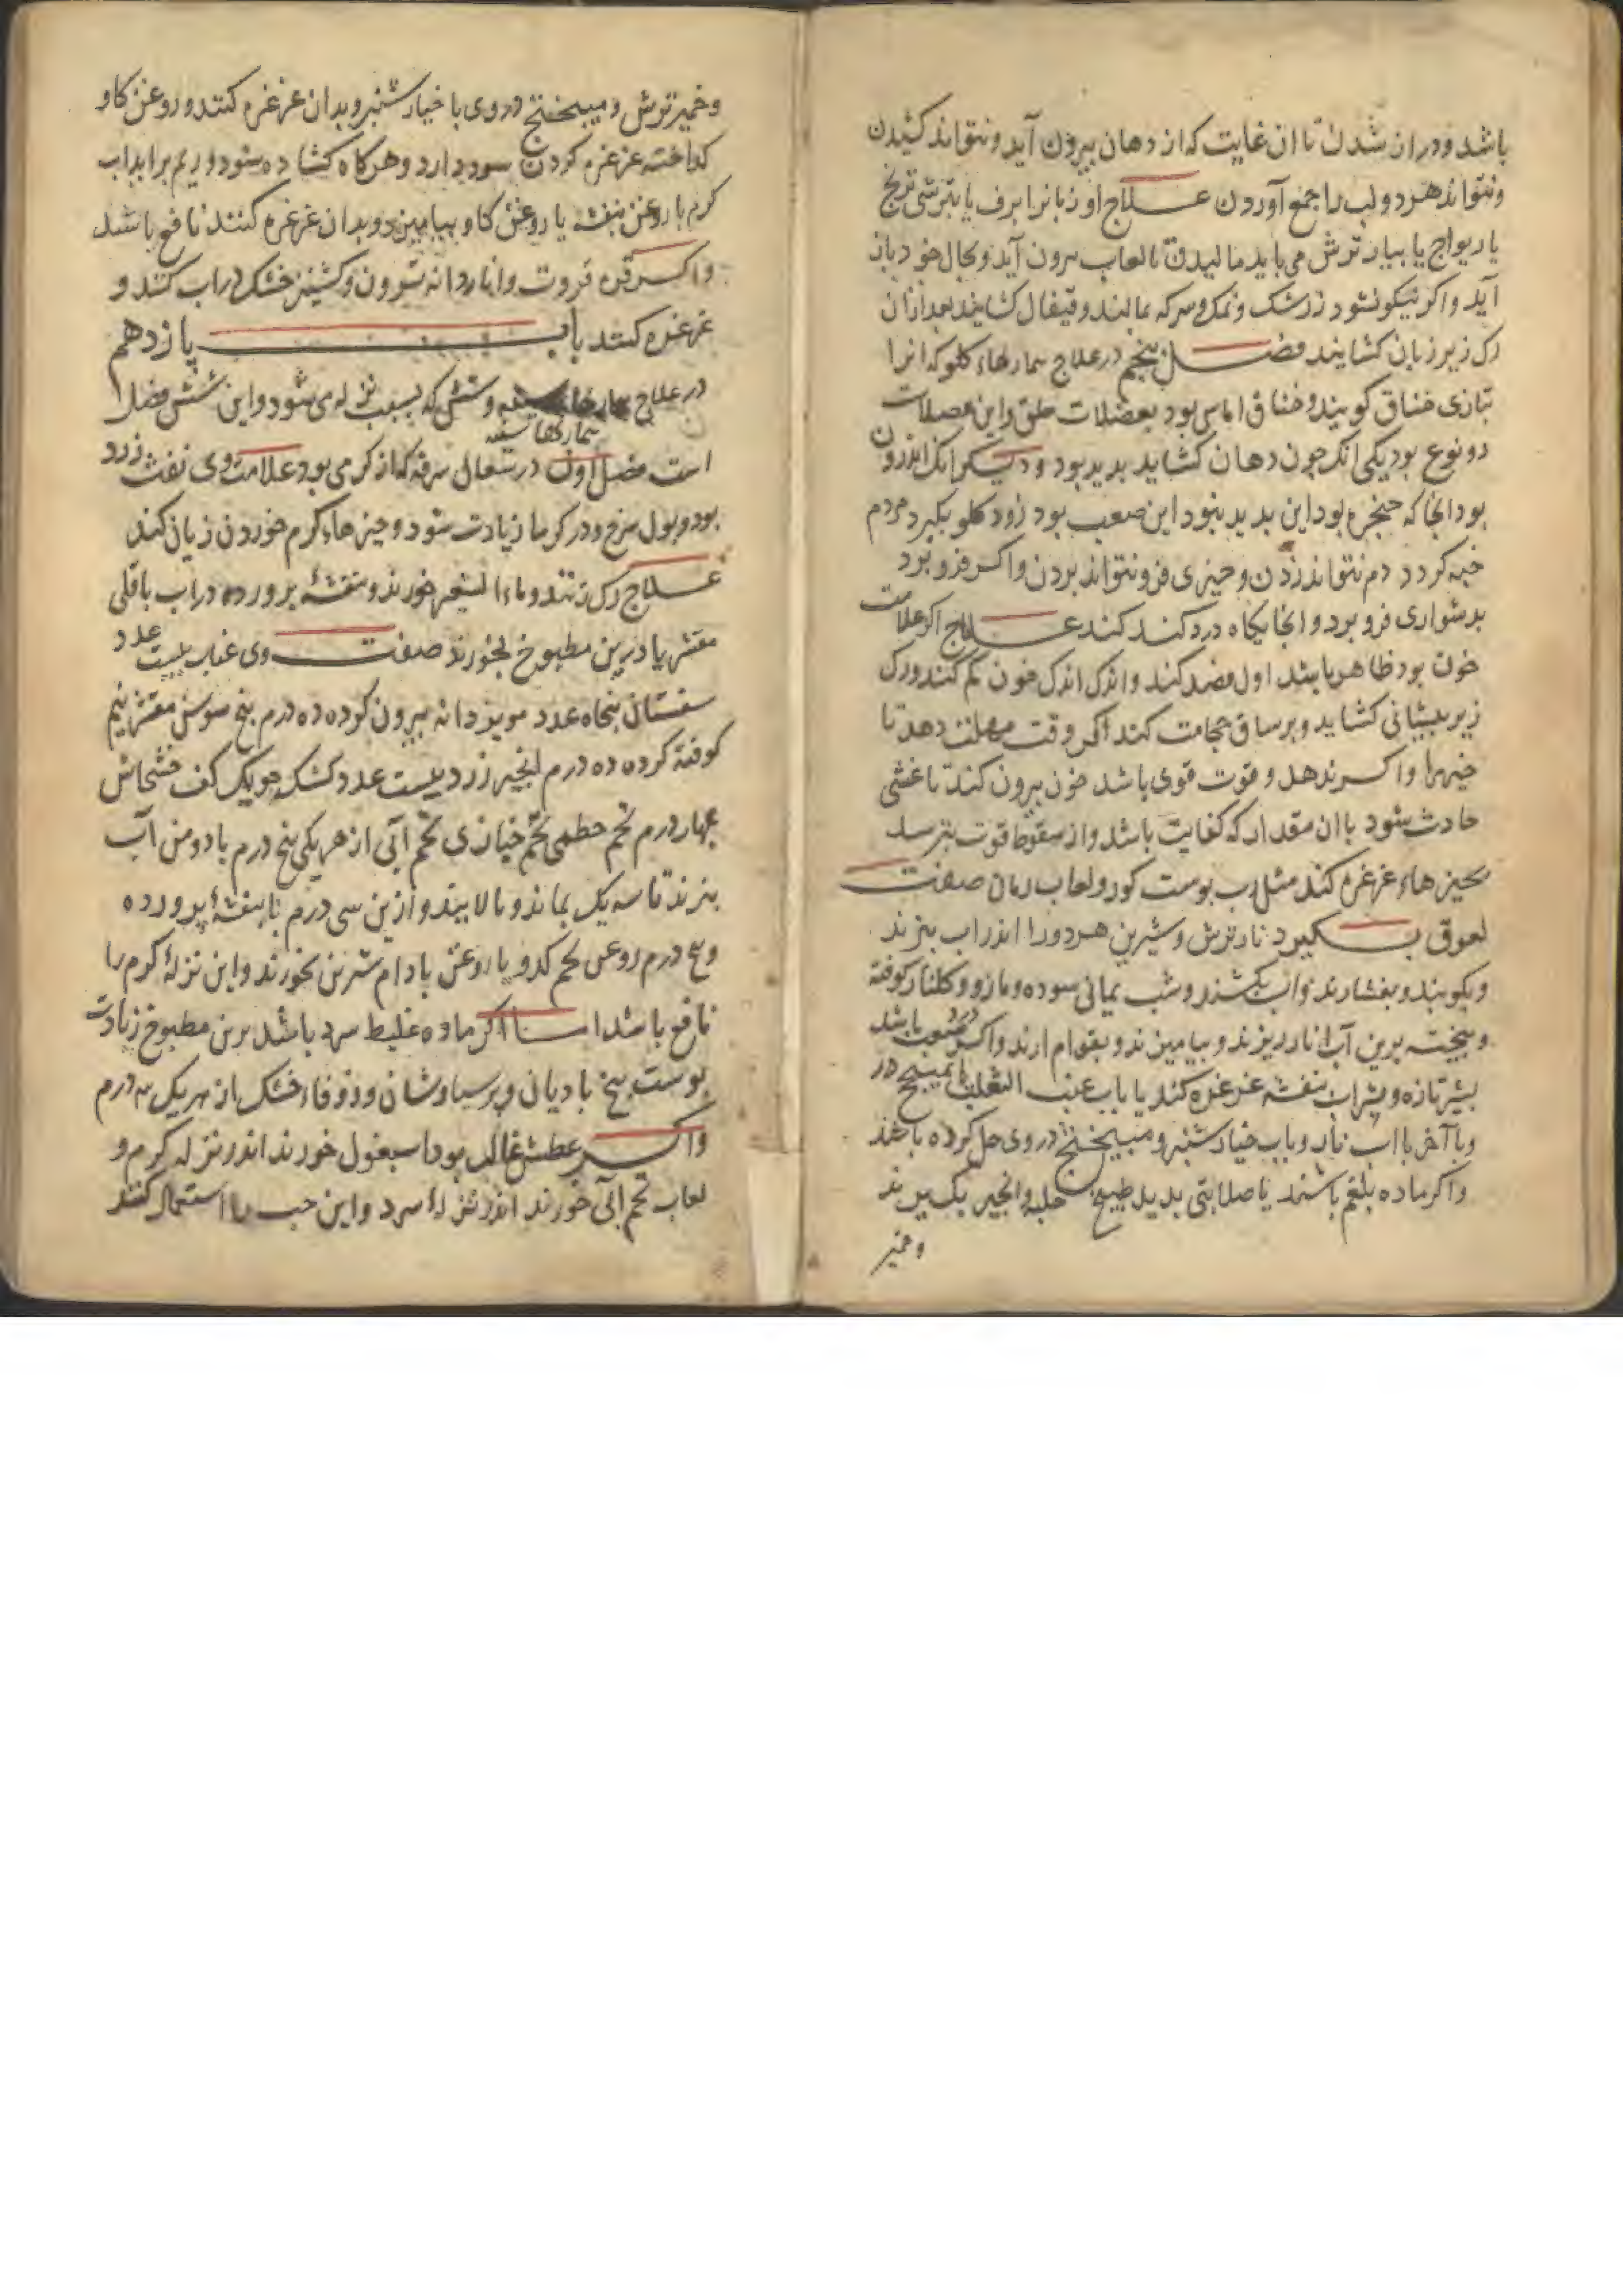 باشد و دراز شدن تا ان غایت که از دهان بیرون آید و نتواند کشیدن
و نتواند هر دو لب را جمع آوردن علاج او زبانرا ببرف یا بترشی ترنج
یا ریواج یا بیار ترش می باید مالیدن تا لعاب بیرون آید و بحال خود باز
آید و اکر نیکو نشود زرشک و نمک و سرکه بمالند و قیفال کشایند بعد ازان
رک زیر زبان کشایند فصل پنجم در علاج بیماریهاء کلو که انرا
بتازی خناق کویند و خناق اماس بود بعضلات حلق و این عضلات
دو نوع بود یکی انک چون دهان کشاید بدید بود و دیکر انک اندرون
بود انجا که حنجره بود این بدید نبود این صعب بود زود کلو بکیرد مردم
خبه کردد دم نتواند زدن و چیزی فرو نتواند بردن و اکر فرو برد
بدشواری فرو برد و انجایکاه درد کند کند علاج اکر علامت
خون بود ظاهر باشد اول فصد کند و اندک اندک خون کم کنند و رک
زیر پیشانی کشاید و بر ساق حجامت کند اکر وقت مهلت دهد تا
و اکر ندهد و قوت قوی باشد خون بیرون کند تا غشی
حادث شود با ان مقدار که کفایت باشد و از سقوط قوت بترسد
بچیزهاء غرغره کند مثل رب پوست کوز و لعاب رمان صفت
لعوق بکیرد نار ترش و شیرین هر دو را اندر اب بپزند
و بکوبند و بفشارند و شب یمانی سوده و مازو و کلنار کوفته
و بیخته برین آب انار ریزند و بیامیزند و بقوام ارند و اکر درد صعب باشد
بشیر تازه و بشراب بنفشه غرغره کند یا باب عنب الثعلب با میبختج در
و با آخر با اب باب خیار شنبر و میبختج در وی حل کرده باشد
و اکر ماده بلغم باشد یا صلابتی بدید طبیخ حلبه و انجیر
و خمیر
و خمیر ترش و میبختج در وی با خیار شنبر و بدان غرغره کنند و روغن کاو
کداخته غرغره کردن سود دارد و هر کاه کشاده شود و ریم براید اب
کرم با روغن بنفشه یا روغن کاو بیامیزد و بدان غرغره کنند نافع باشد
و اکر و انار دانه و کشنیز خشک در اب کنند و
غرغره کنند باب یازدهم
در علاج بیماریهاء سینه و شش که بسبب نزله می شود و این شش فصل
است فصل اول در سعال سرفه که از کرمی بود علامت وی نفث زرد
بود و بول سرخ و در کرما زیادت شود و چیزهاء کرم خوردن زیان کند
علاج رک زنند و ماء الشعیر خورند و بنفشهٔ پرورده در اب باقلی
مقشر یا درین مطبوخ بخورند صفت وی عناب بیست عدد
سفستان پنجاه عدد مویز دانه بیرون کرده ده درم بیخ سوسن مقشر نیم
کوفته کرده ده درم انجیر زرد بیست عدد کشک جو یک کف خشخاش
چهار درم تخم خطمی تخم خبازی تخم آبی از هر یکی پنج درم با دو من آب
بپزند تا سه یک بماند و بالایند و ازین سی درم با بنفشهٔ پرورده
و پنج درم روغن تخم کدو یا روغن بادام شرین بخورند و این نزلهٔ کرم را
نافع باشد اما اکر ماده غلیظ سرد باشد برین مطبوخ زیادت
پوست بیخ بادیانی و پرسیاوشان و زوفاء خشک از هر یک سه درم
و اکر عطش غالب بود اسبغول خورند اندر نزله کرم و
لعاب تخم آبی خورند اندر نزلهٔ سرد و این حب را استعمال کنند